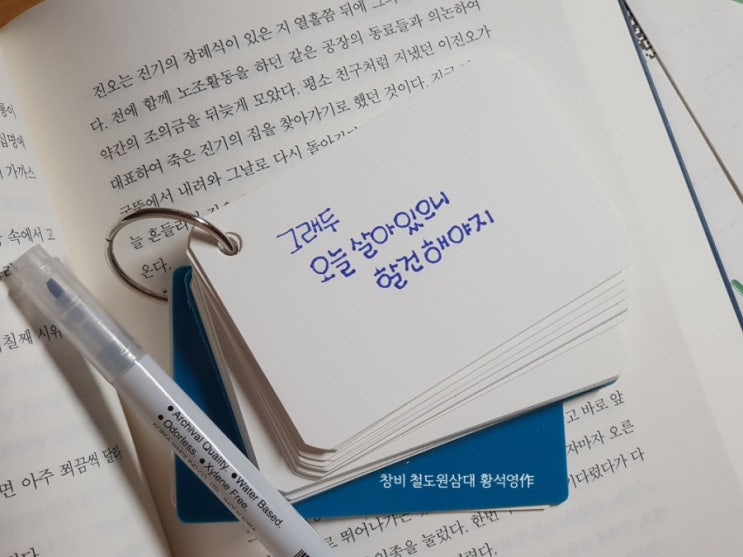 진오는 진기의 장례식이 있은 지 열흘쯤 뒤에
다. 전에 함께 노조활동을 하던 같은 공장의 동료들과 의논하여
약간의 조의금을 뒤늦게 모았다. 평소 친구처럼 지냈던 이진오가
대표하여 죽은 진기의 집을 찾아가기로 했던 것이다.
굴뚝에서 내려와 그날로 다시
늘 흔들리
온다.
심명에
가까스
속에서 고
칠째 시위
면 아주 쬐끔씩
그래두
오늘 살아있으니
할건해야지
Archival Quality. Water Based.
Odorless. Xylene Free.
창비 철도원삼대 황석영作
고 바로 앞
자마자 오른
기다렸다가 다
로 뛰어나가는
눌렀다. 한번